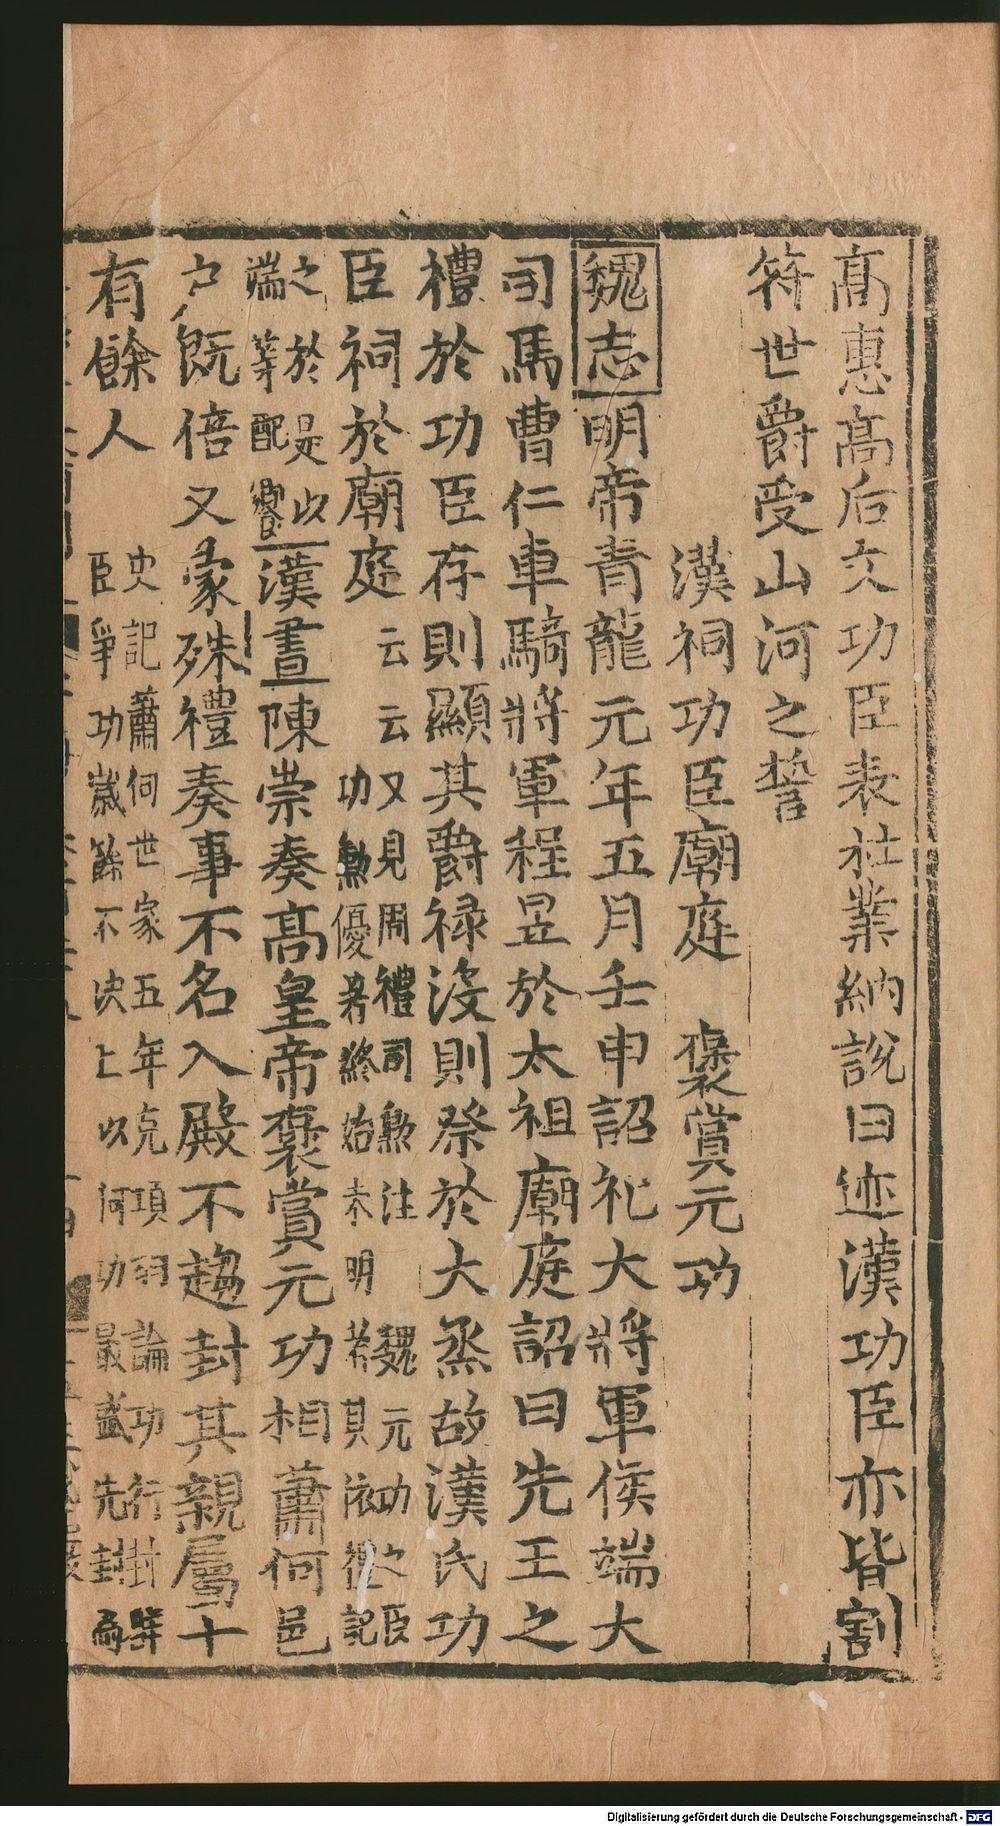 高惠高后文功臣表杜業納說曰迹漢功臣亦皆割
符世爵受山河之誓
漢祠功臣廟庭　褒賞元功
魏志明帝青龍元年五月壬申詔祀大將軍侯端大
司馬曹仁車騎將軍程昱於太祖廟庭詔曰先王之
禮於功臣存則顯其爵禄沒則祭於大烝故漢氏功
臣祠於廟庭云云又見周禮司勲注　魏元功之臣
功勲優著終始未明者其依禮記
之於是以
端等配饗漢書陳崇奏高皇帝褒賞元功相蕭何邑
户既倍又蒙殊禮奏事不名入殿不趨封其親屬十
有餘人
史記蕭何世家五年克項羽論功行封群
臣爭功歲餘不决上以何功最盛先封爲
Digitalisierung gefördert durch die Deutsche Forschungsgemeinschaft - DFG